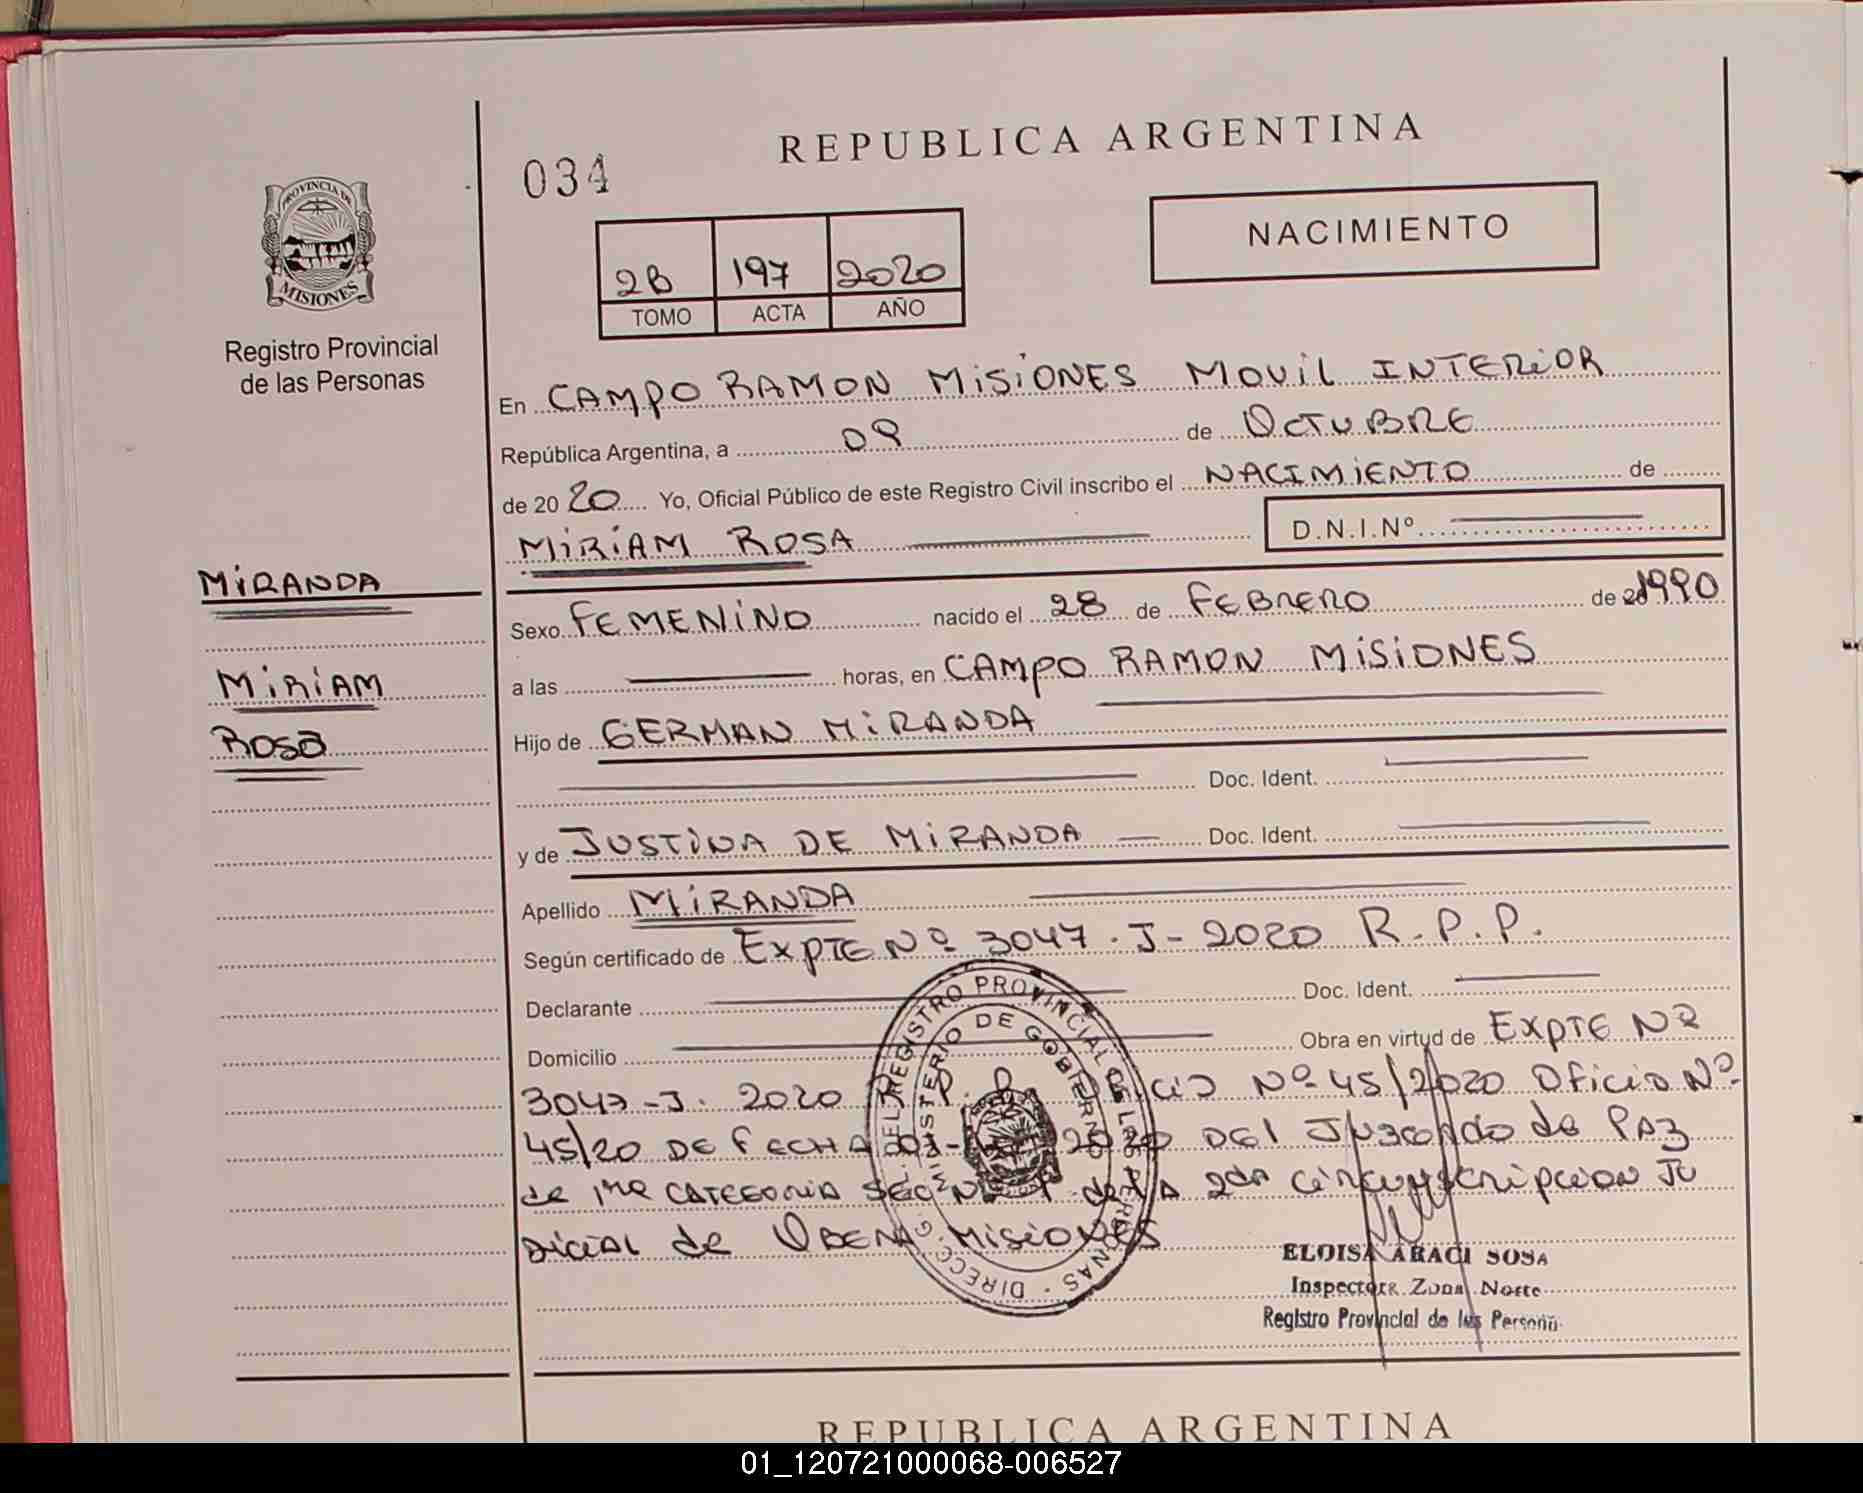 REPUBLICA ARGENTINA
034
PROVINCIA DE
MISIONES
Registro Provincial
de las Personas
NACIMIENTO
2B 197 2020
TOMO ACTA AÑO
En CAMPO RAMON MISIONES MOVIL INTERIOR
República Argentina, a 09 de OCTUBRE
de 2020 Yo, Oficial Público de este Registro Civil inscribo el NACIMIENTO de
MIRIAM ROSA D.N.I.Nº
MIRANDA
MIRIAM
ROSA
Sexo FEMENINO nacido el 28 de FEBRERO de 1990
a las horas, en CAMPO RAMON MISIONES
Hijo de GERMAN MIRANDA
Doc. Ident.
y de JUSTINA DE MIRANDA Doc. Ident.
Apellido MIRANDA
Según certificado de EXPTE Nº 3047-J-2020 R.P.P.
Declarante Doc. Ident.
Domicilio Obra en virtud de EXPTE Nº
3047-J. 2020 R.P.P. Nº 45/2020 Oficio Nº
45/20 DE FECHA 2020 DEL Juzgado de PAZ
de 1ra CATEGORIA de LA 2da circunscripcion JU
DICIAL de OBERA MISIONES
DIRECC. G. DEL REGISTRO PROVINCIAL DE LAS PERSONAS
MINISTERIO DE GOBIERNO
ELOISA ARACI SOSA
Inspectora Zona Norte
Registro Provincial de las Person
REPUBLICA ARGENTINA
01_120721000068-006527